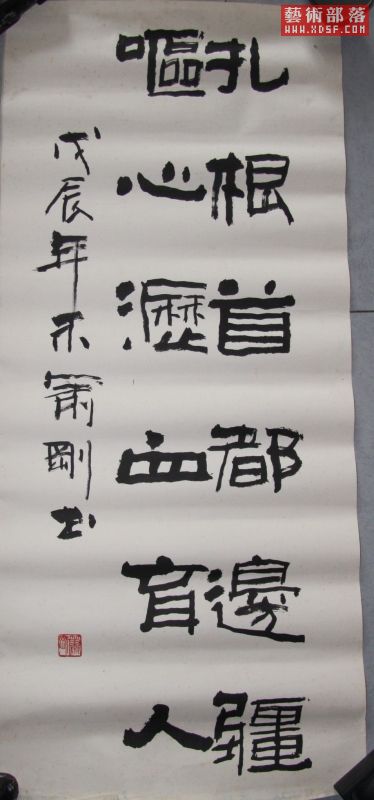 藝術部落
WWW.XDSF.COM
扎根首都邊疆
嘔心瀝血育人
戊辰年禾簫剛书